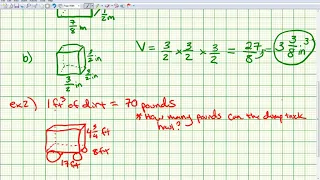 7/8 m
1/2 m
b)
3/2 in
3/2 in
3/2 in
V = 3/2 x 3/2 x 3/2 = 27/8 = 3 3/8 in³
ex2) 1 ft³ of dirt = 70 pounds
* How many pounds can the dump truck haul?
4 3/4 ft
8 ft
17 ft